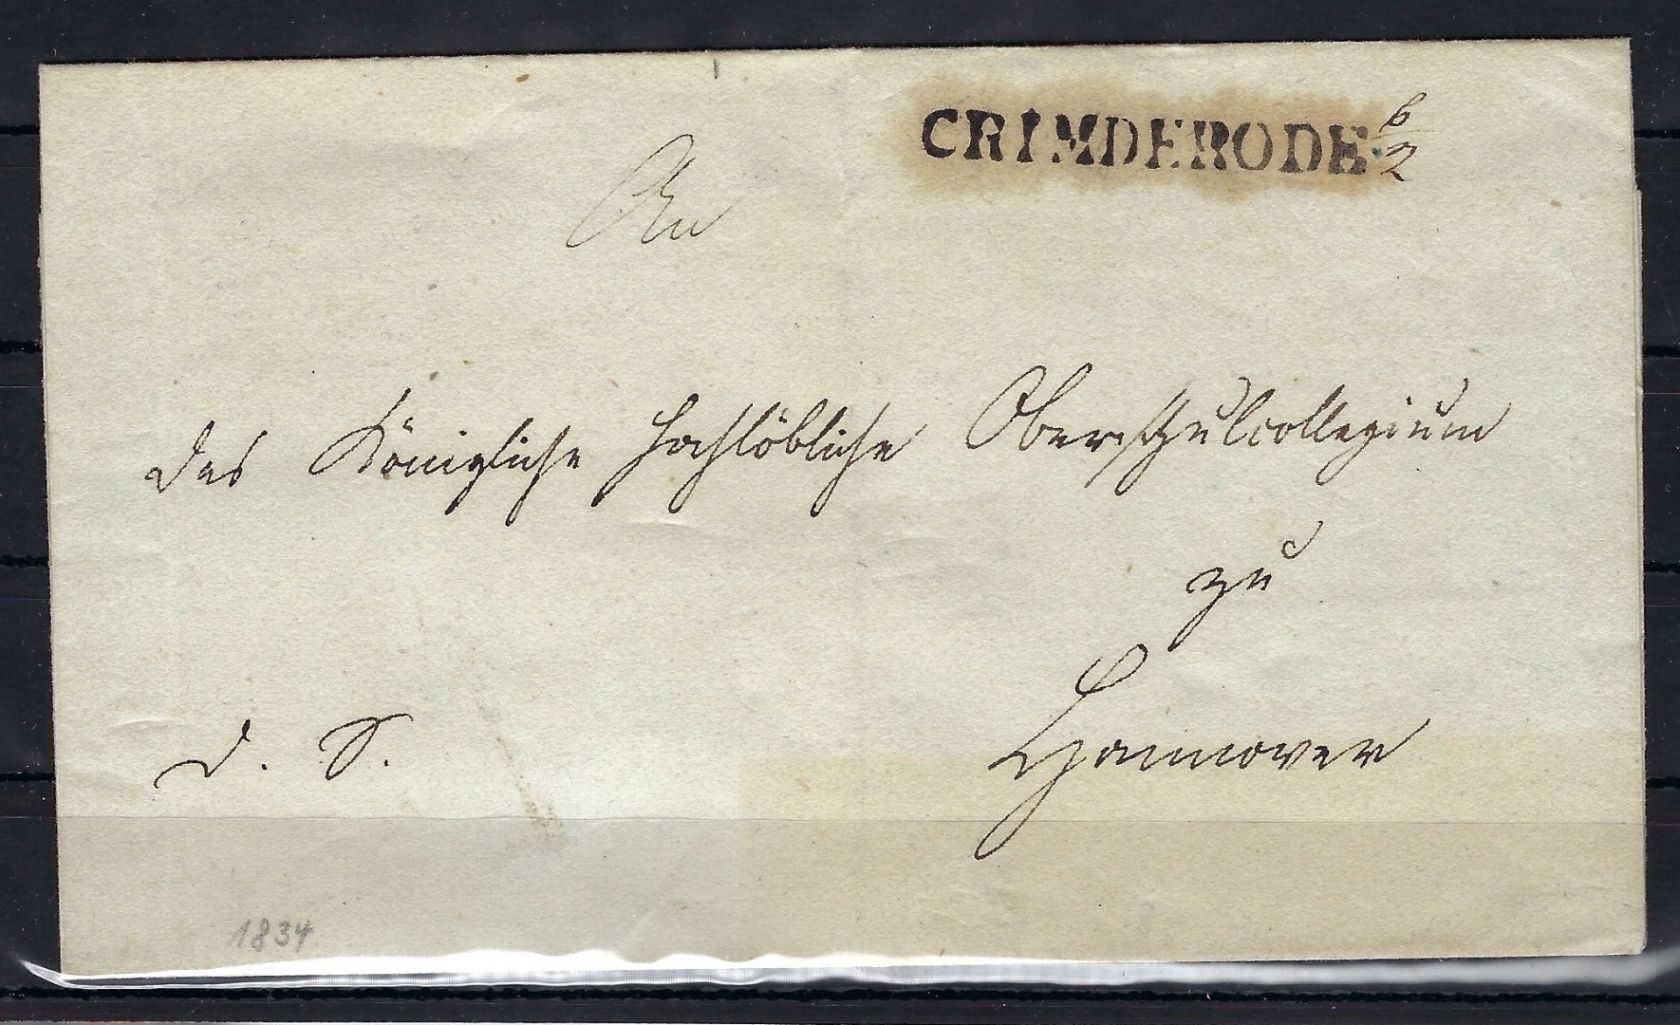 CRIMDERODE 6/2
An
das Königliche hochlöbliche Oberschulcollegium
zu
Hannover
d. S.
1834